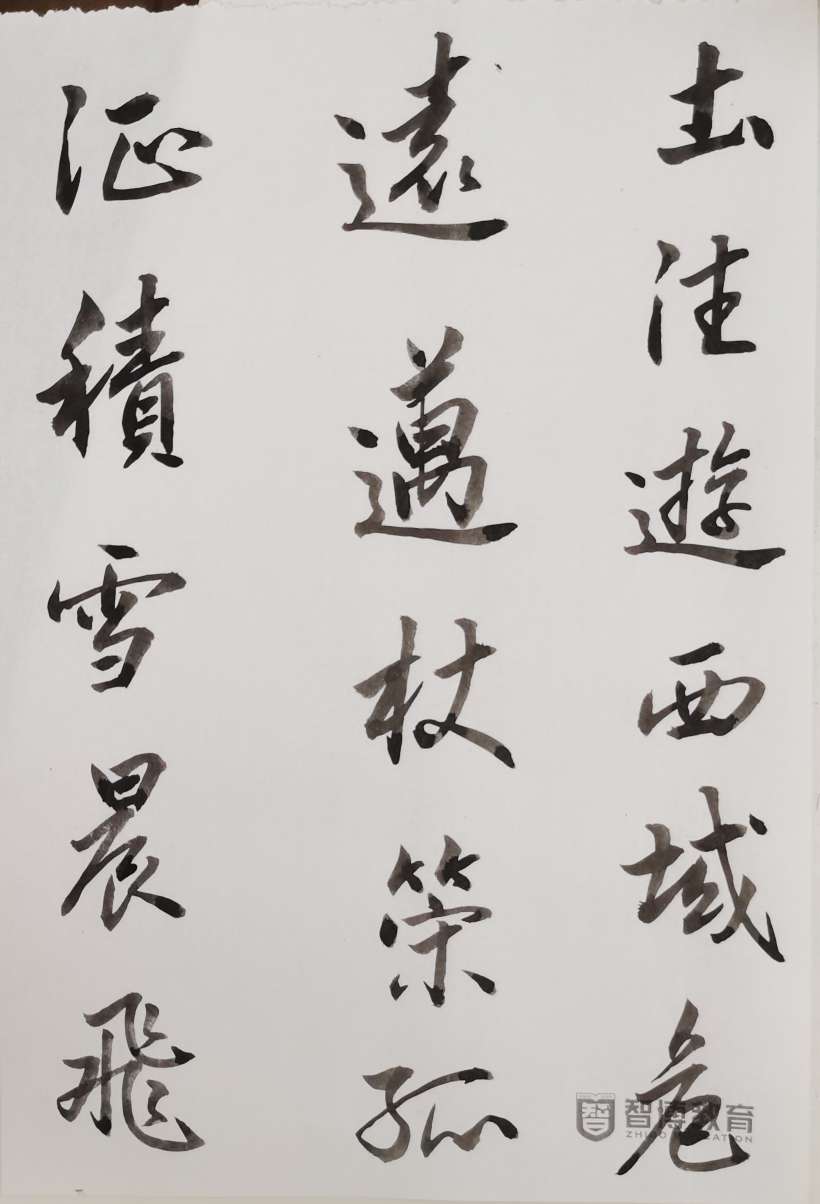 土往遊西域危
遠邁杖策孤
征積雪晨飛
智博教育
ZHIBO EDUCATION